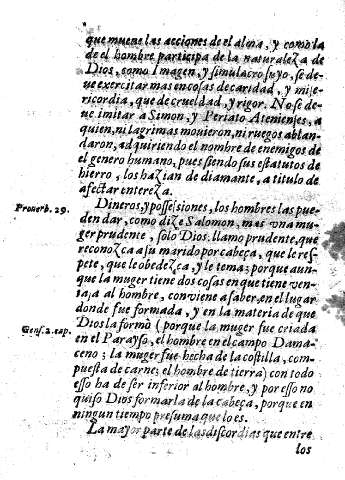 que mueue las acciones de el alma, y como la
de el hombre participa de la naturaleza de
Dios, como Imagen, y simulacro suyo, se de-
ue exercitar mas en cosas de caridad, y mise-
ricordia, que de crueldad, y rigor. No se de-
ue imitar a Simon, y Periato Atenienses, a
quien, ni lagrimas mouieron, ni ruegos ablan-
daron, adquiriendo el nombre de enemigos de
el genero humano, pues siendo sus estatutos de
hierro, los hazian de diamante, a titulo de
afectar entereza.
Prouerb. 29.
Dineros, y possesiones, los hombres las pue-
den dar, como dize Salomon, mas vna mu-
ger prudente, solo Dios. llamo prudente, que
reconozca a su marido por cabeça, que le res-
pete, que le obedezca, y le tema; porque aun-
que la muger tiene dos cosas en que tiene ven-
taja al hombre, conviene a saber, en el lugar
donde fue formada, y en la materia de que
Genes. 2. cap.
Dios la formò (porque la muger fue criada
en el Parayso, el hombre en el campo Dama-
ceno; la muger fue hecha de la costilla, com-
puesta de carne; el hombre de tierra) con todo
esso ha de ser inferior al hombre, y por esso no
quiso Dios formarla de la cabeça, porque en
ningun tiempo presuma que lo es.
La mayor parte de las discordias que entre
los